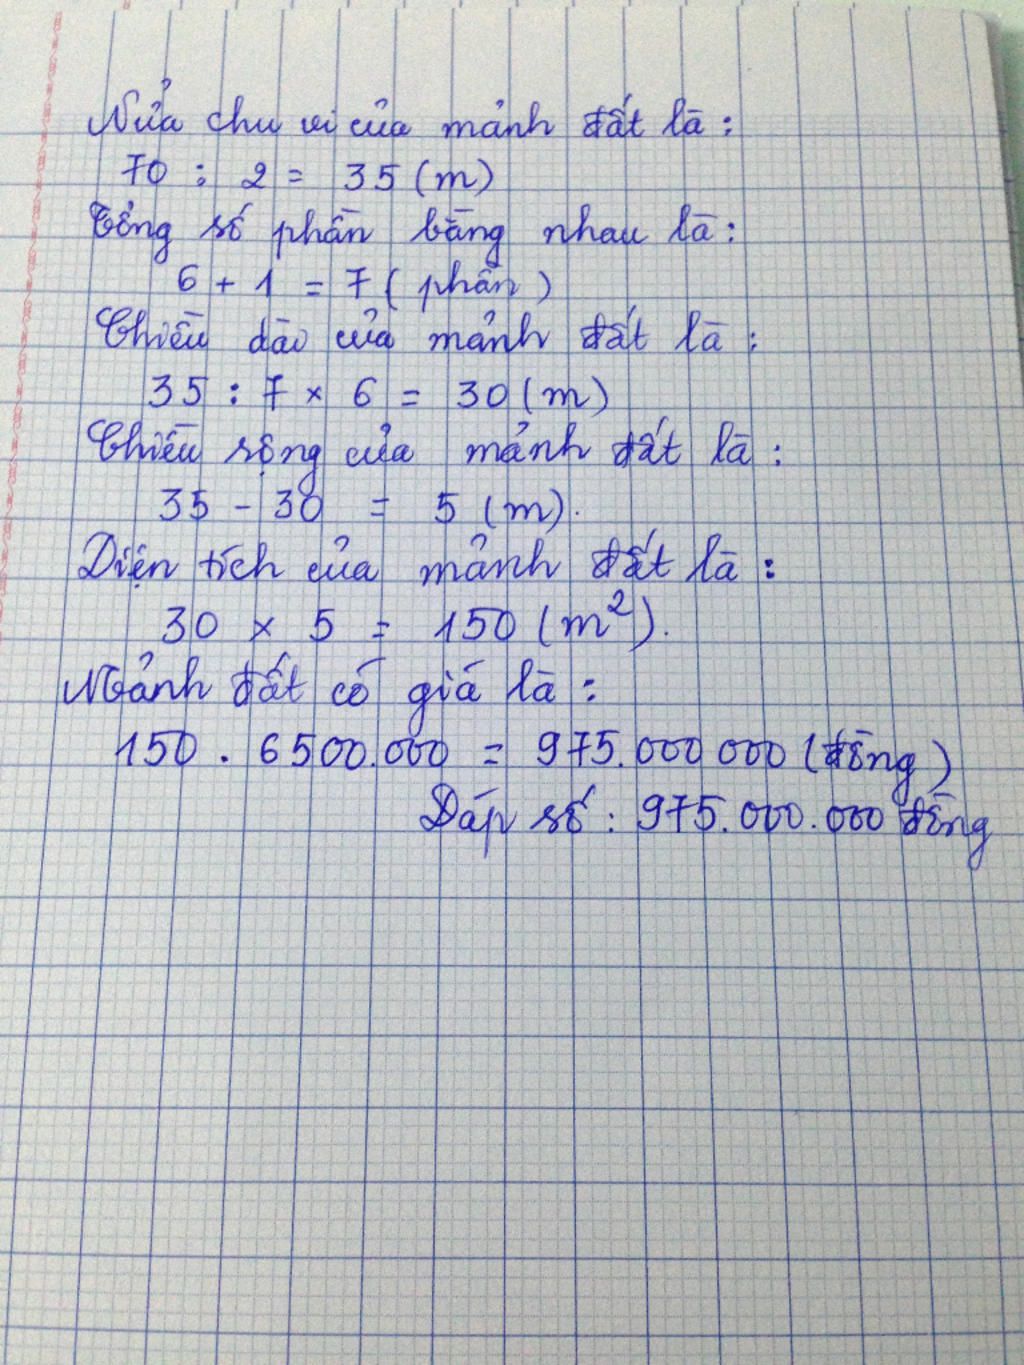 Nửa chu vi của mảnh đất là:
70 : 2 = 35 (m)
Tổng số phần bằng nhau là:
6 + 1 = 7 ( phần )
Chiều dài của mảnh đất là :
35 : 7 × 6 = 30 (m)
Chiều rộng của mảnh đất là :
35 - 30 = 5 (m).
Diện tích của mảnh đất là :
30 × 5 = 150 (m²).
Mảnh đất có giá là :
150 . 6500.000 = 975.000 000 (đồng )
Đáp số : 975.000.000 đồng